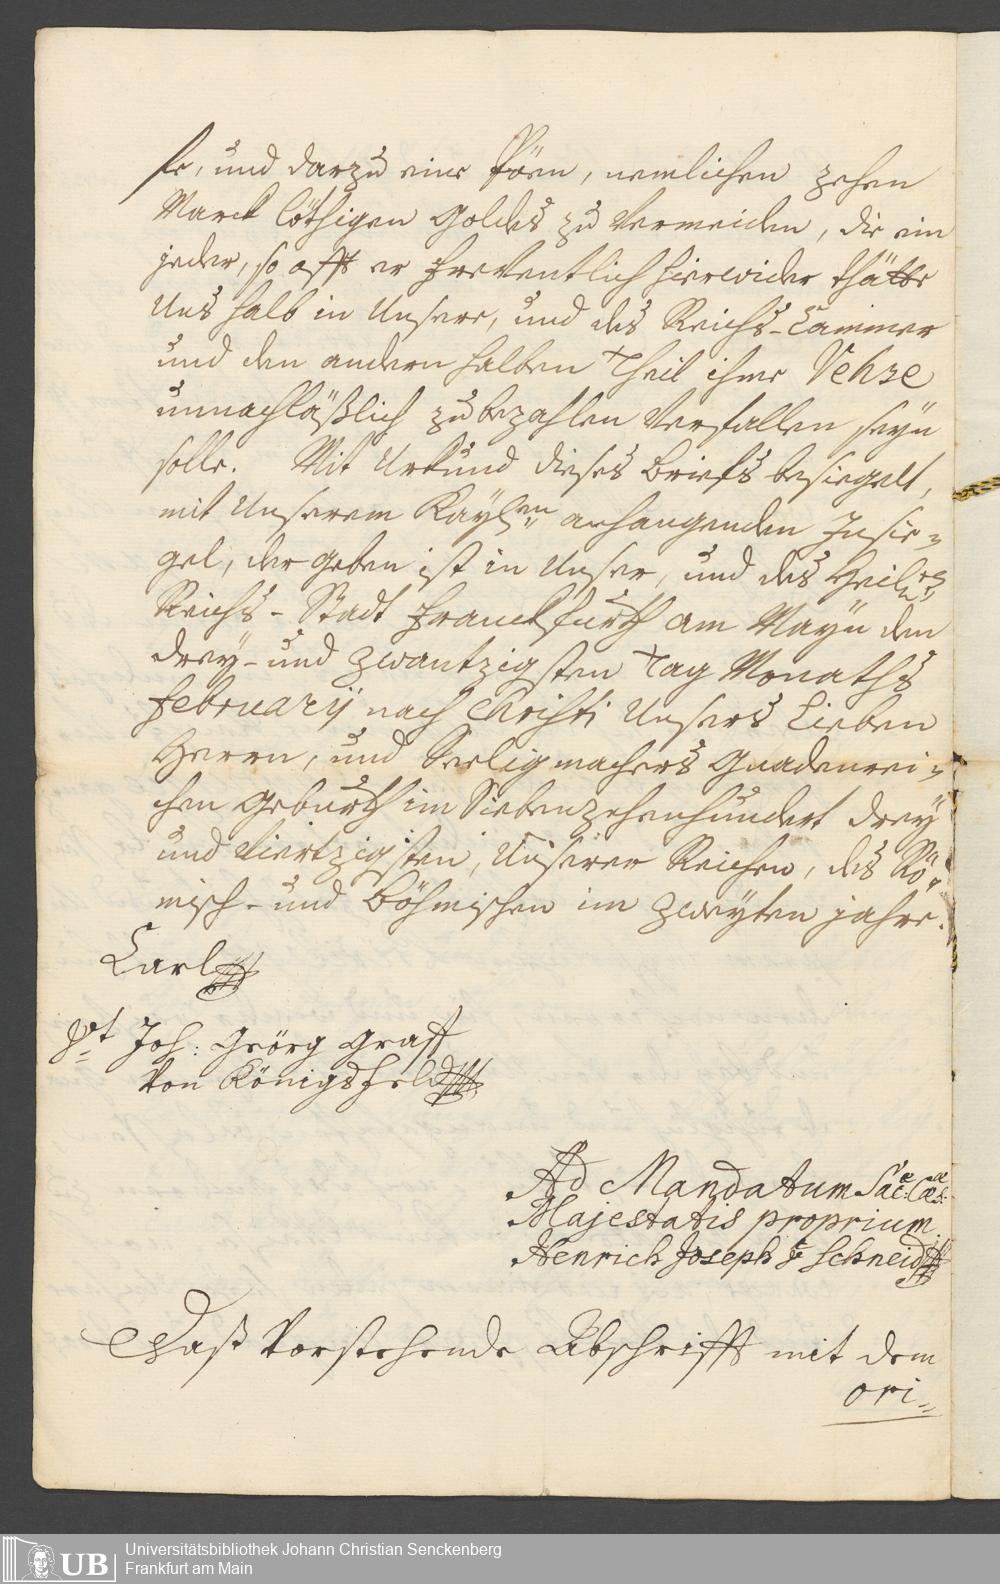 fe, und darzu eine Pöen, nemlichen zehen
Marck löthigen Goldes zu Vermeiden, die ein
jeder, so offt er freventlich hierwider thätte
Uns halb in Unsere, und des Reichs-Cammer
und den andern halben Theil ihme Vehse
unnachläßlich zubezahlen Verfallen seyn
solle. Mit Urkund dieses Briefs besiegelt,
mit Unserem Kayl:en anhangenden Insie-
gel, der geben ist in Unser, und des Heil:en
Reichs-Stadt Franckfurth am Mayn den
drey-und zwantzigsten Tag Monaths
Februarij nach Christi Unsers Lieben
Herrn, und Seeligmachers Gnadenrei-
chen Geburth im Siebenzehenhundert drey
und Viertzigsten, Unserer Reichen, des Rö-
misch- und Böhmischen im zweyten jahre.
Carl
Vt Joh: Geörg Graff
Von Königsfeld
Ad Mandatum Sac:æ Cæs:æ
Majestatis proprium
Henrich Joseph Schneid
Daß Vorstehende Abschrifft mit dem
ori-
UB Universitätsbibliothek Johann Christian Senckenberg
Frankfurt am Main